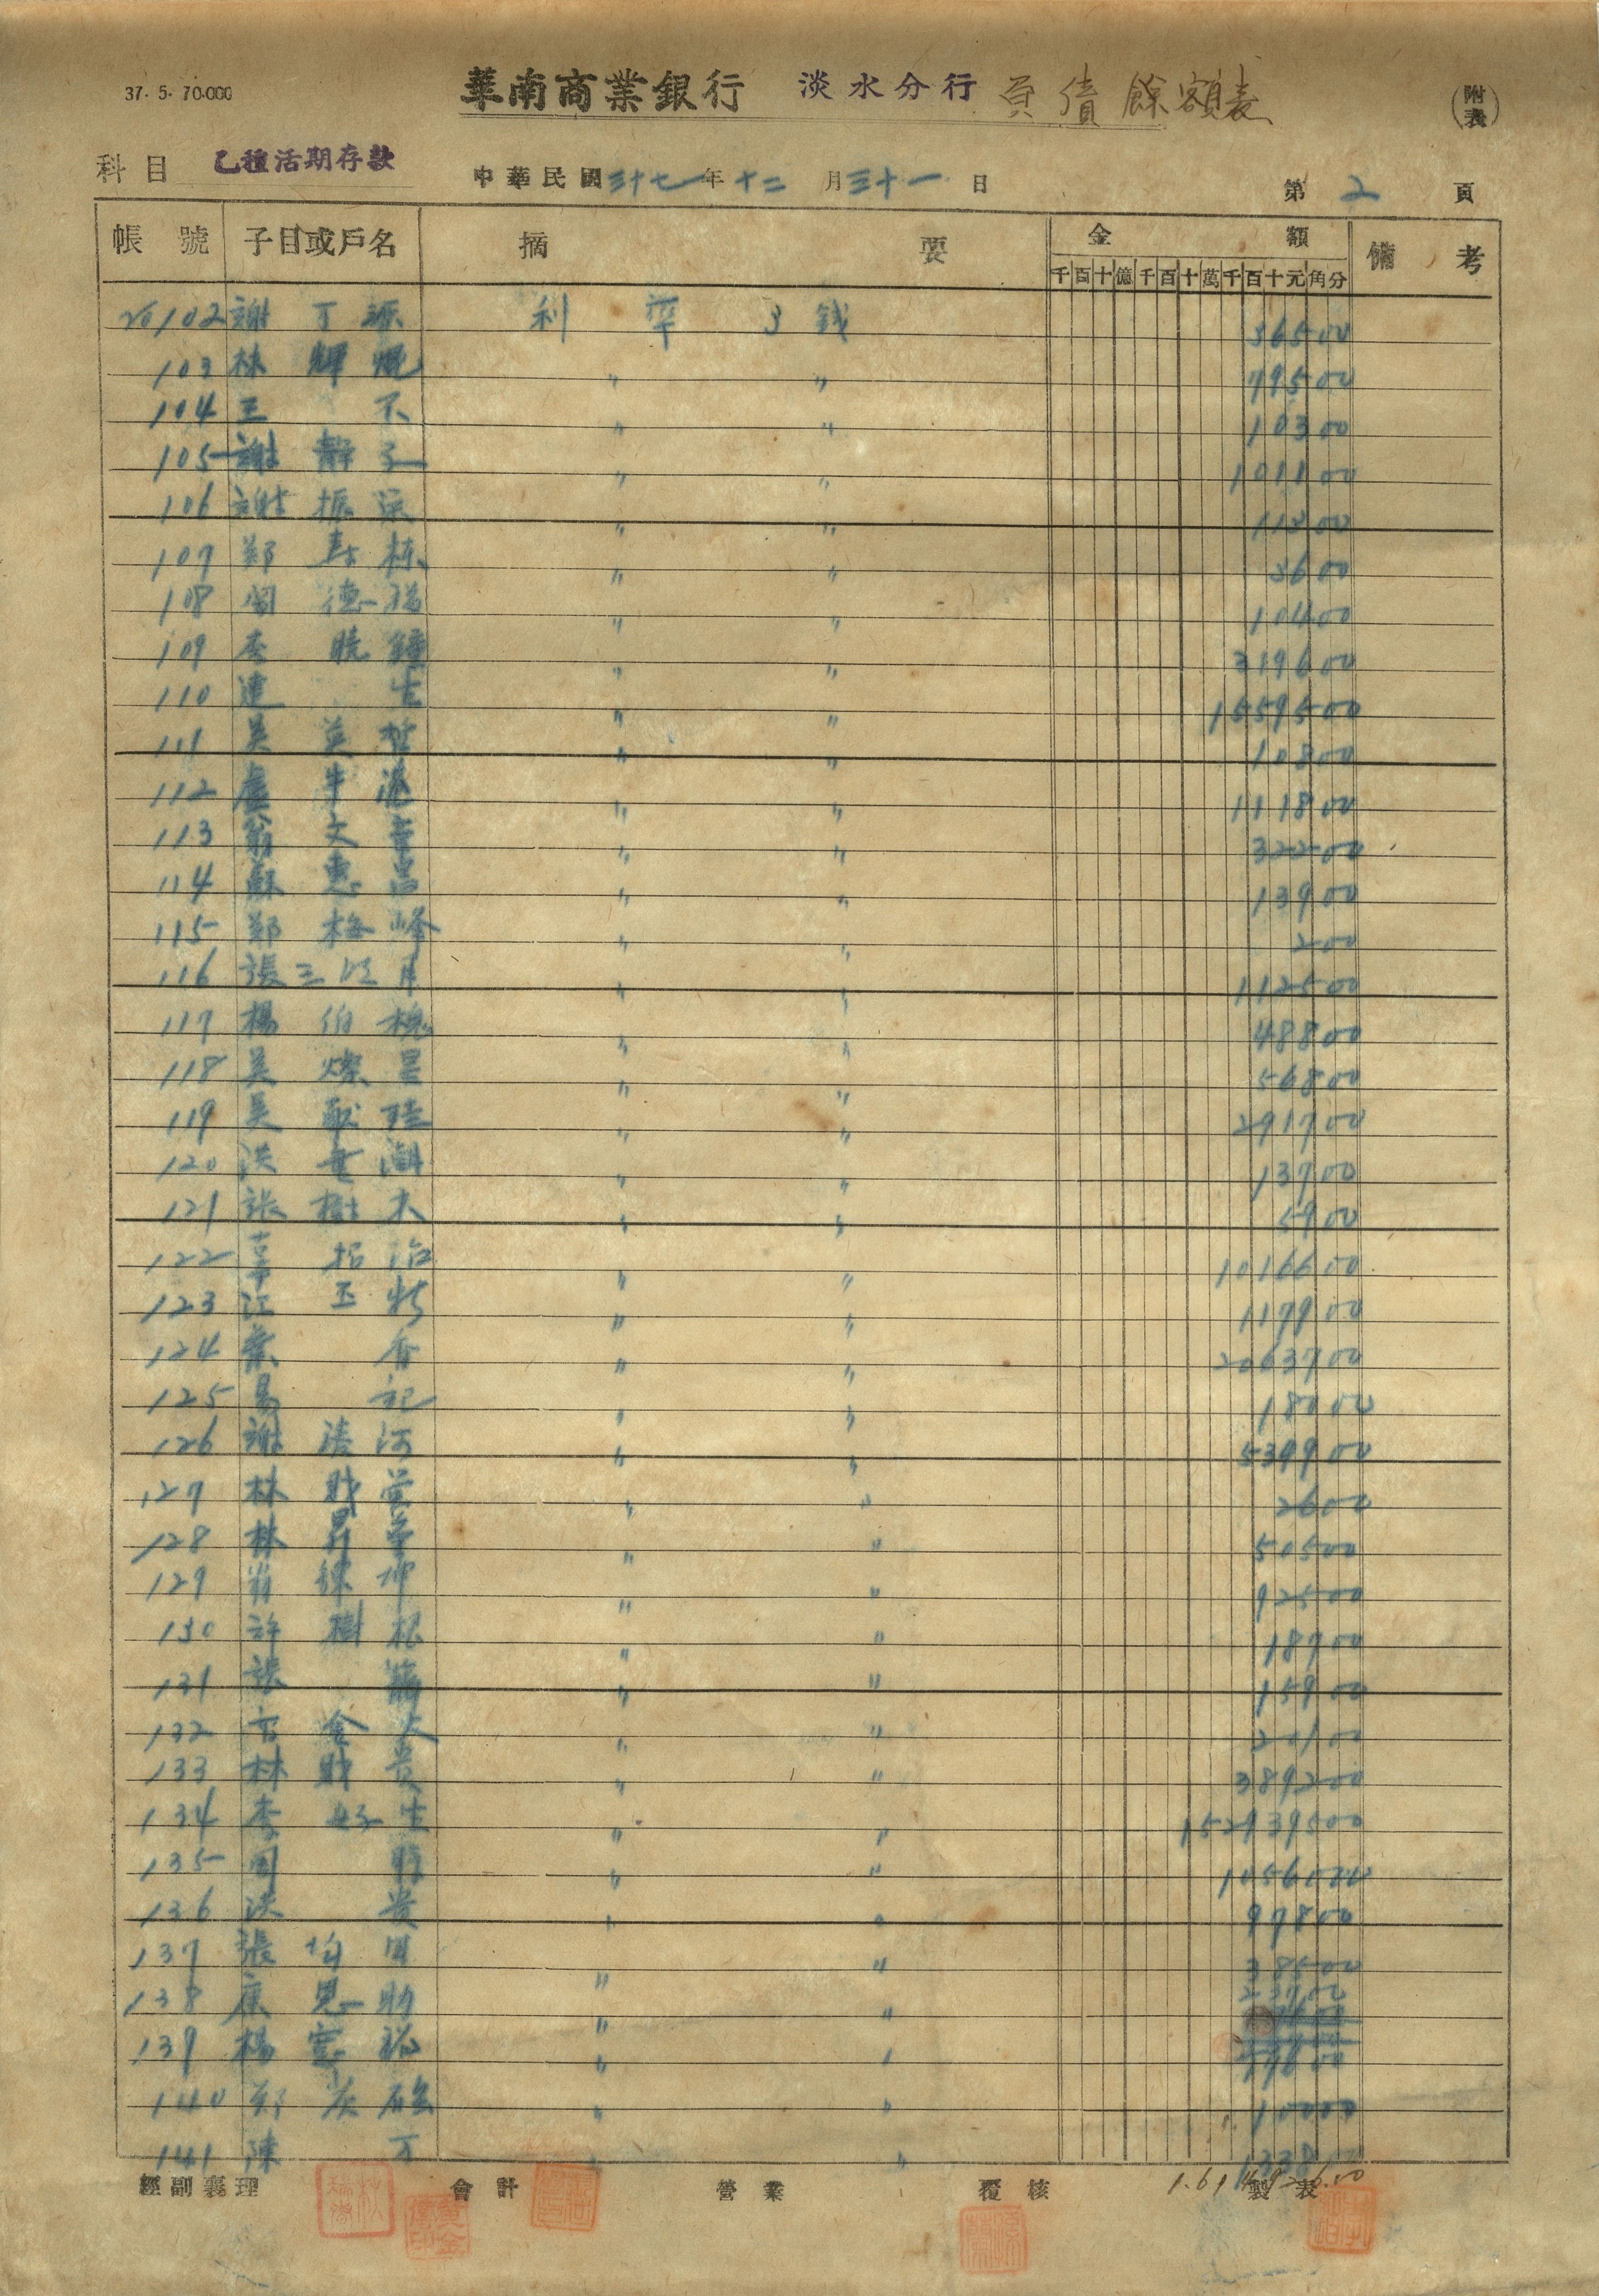 37. 5. 70.000
華南商業銀行 淡水分行 負債餘額表 (附表)
科目 乙種活期存款 中華民國三十七年十二月三十一日 第2頁
帳號 子目或戶名 摘要 金額 備考
千百十億千百十萬千百十元角分
102 謝丁源 利率3錢 36500
103 林輝焜 〃 〃 79500
104 王不 〃 〃 10300
105 謝靜子 〃 〃 101100
106 謝振 〃 〃 11200
107 鄭春棟 〃 〃 3600
108 德 〃 〃 10400
109 李曉鐘 〃 〃 319600
110 連生 〃 〃 1559500
111 吳英哲 〃 〃 10800
112 盧牛港 〃 〃 111800
113 翁文章 〃 〃 32200
114 蘇惠昌 〃 〃 13900
115 鄭梅峰 〃 〃 200
116 張三月 〃 〃 112500
117 楊伯槐 〃 〃 48800
118 吳燦星 〃 〃 56800
119 吳 〃 〃 291700
120 洪 〃 〃 13700
121 張樹木 〃 〃 5900
122 辜招治 〃 〃 1016600
123 江玉 〃 〃 117900
124 葉香 〃 〃 2063700
125 易記 〃 〃 18000
126 謝清河 〃 〃 539900
127 林財 〃 〃 2600
128 林昇 〃 〃 50500
129 翁錦坤 〃 〃 92500
130 許樹根 〃 〃 18700
131 張 〃 〃 15900
132 金火 〃 〃 20100
133 林財貴 〃 〃 389200
134 李好生 〃 〃 152939500
135 周 〃 〃 1056000
136 洪貴 〃 〃 97800
137 張均 〃 〃 38500
138 康恩助 〃 〃 23700
139 楊憲 〃 〃 77600
140 鄭炭 〃 〃 10000
141 陳万 〃 〃 133800
經副襄理 會計 營業 覆核 製表